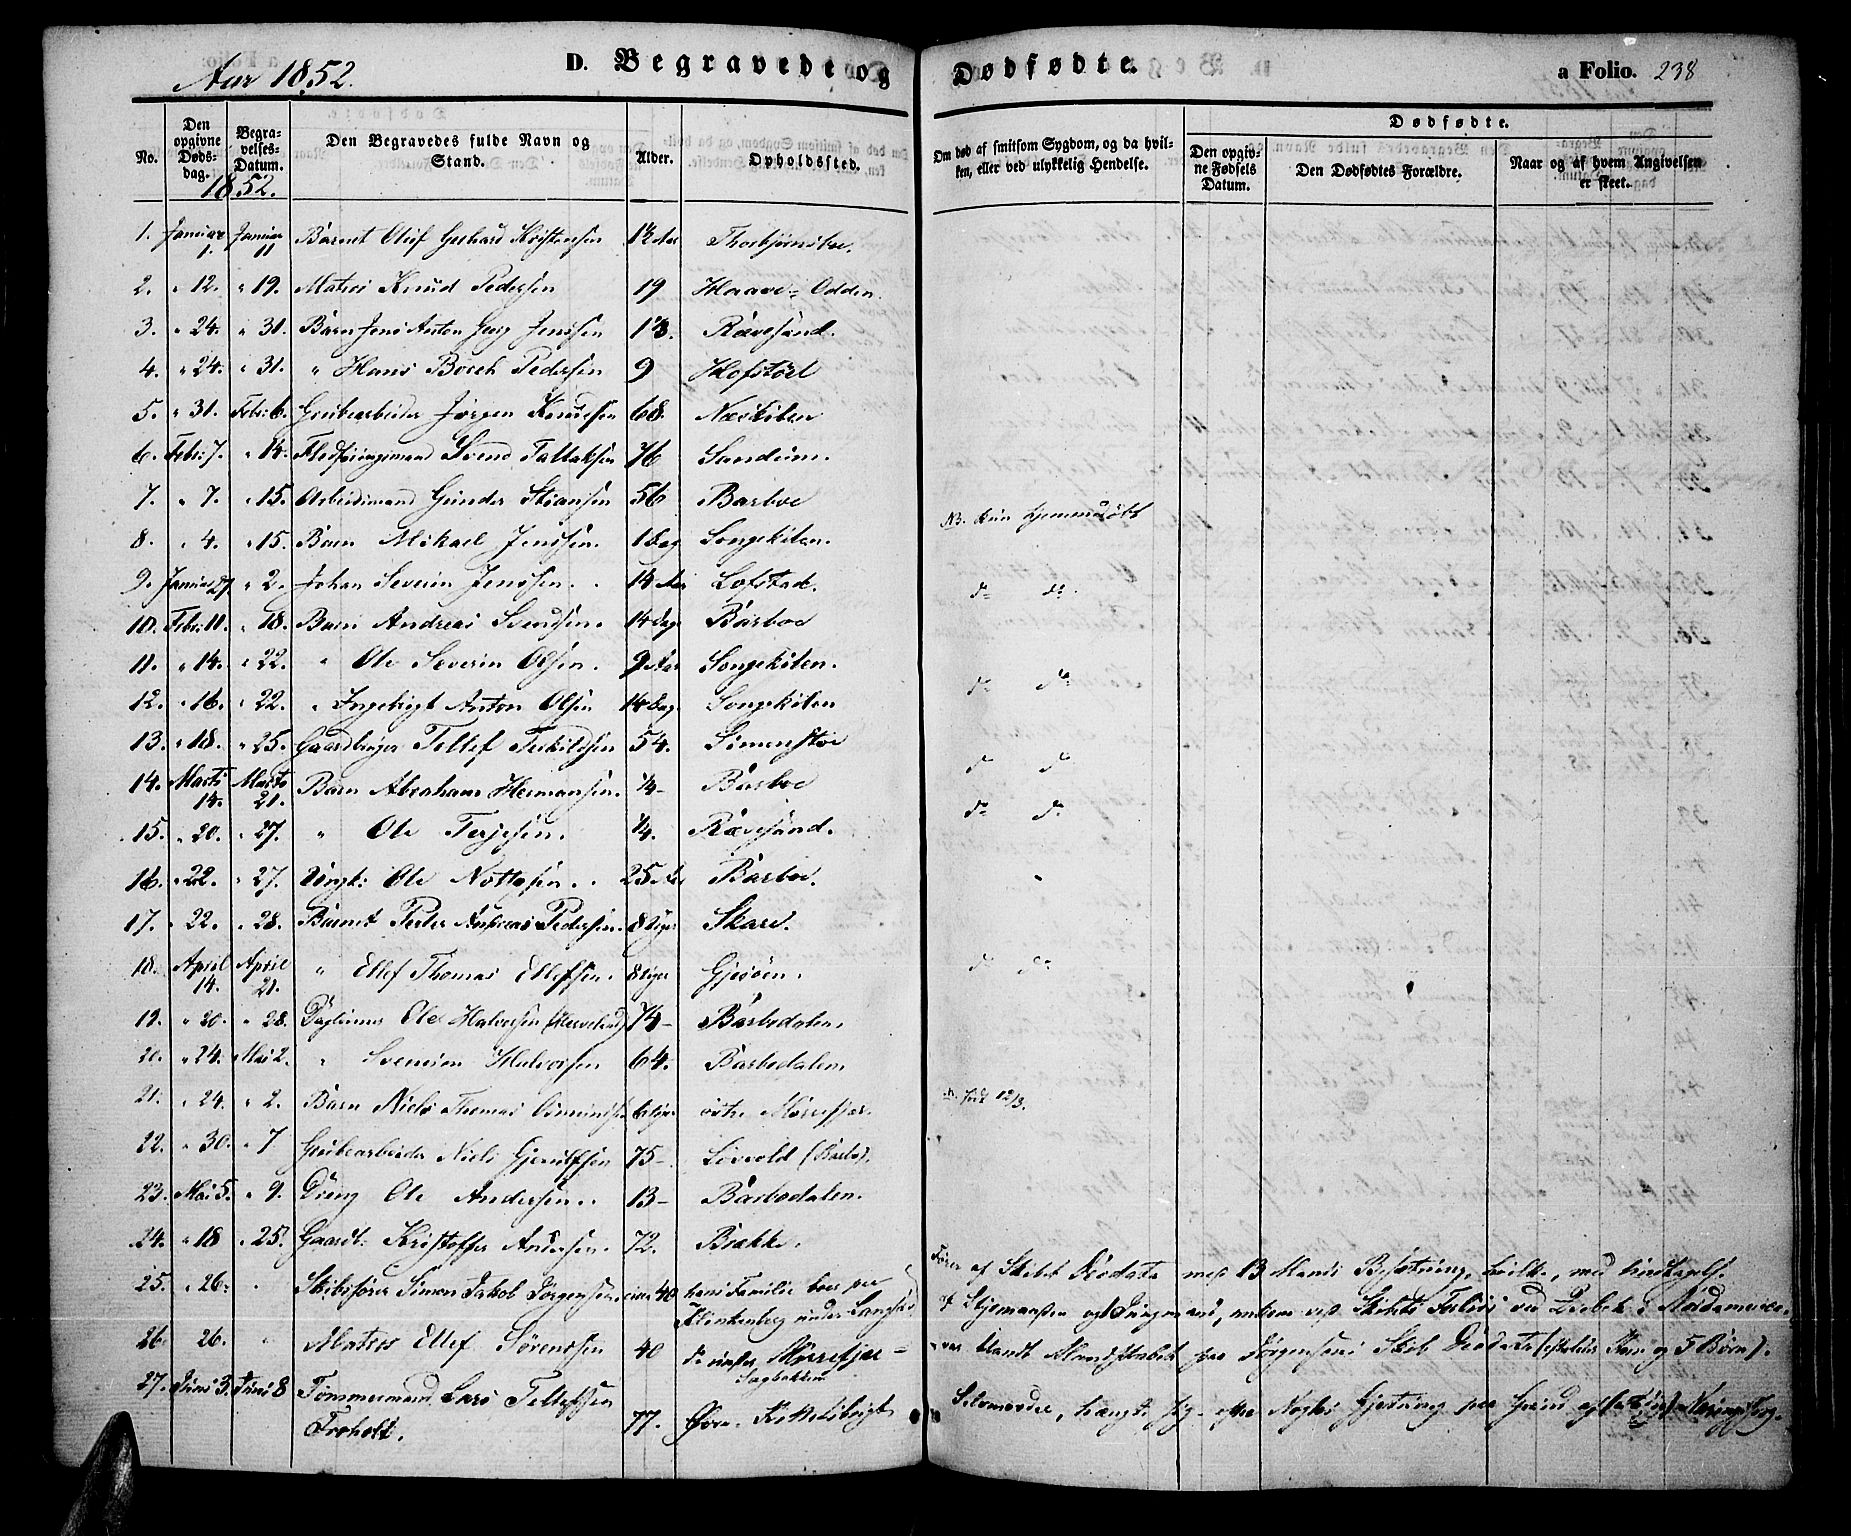 Aar 1852.
D. Begravede og Dødfødte.
a Folio. 238
No.
Den opgivne Døds-dag.
Begra-velses-Datum.
Den Begravedes fulde Navn og Stand.
Alder.
Opholdssted.
Om død af smitsom Sygdom, og da hvil-ken, eller ved ulykkelig Hendelse.
Dødfødte.
Den opgiv-ne Fødsels Datum.
Den Dødfødtes Forældre.
Naar og af hvem Angivelsen er skeet.
1852.
1. Januar 1. Januar 11 Barnet Oluf Gerhard Kristensen Thorbjørnsboe.
2. " 12. " 19. Matros Knud Pedersen 19 Haave-Odden.
3. " 24. " 31. Barn Jens Anton Georg Jenssen Rævesand.
4. " 24. " 31. " Hans Boech Pedersen 9 Hofstøel
5. " 31. Febr: 6. Grubearbeider Jørgen Knudsen 68. Næskilen
6. Febr: 7. " 14. Fledføringsmand Svend Tallaksen 76 Sandum.
7. " 7. " 15. Arbeidsmand Gunder Stiansen 56 Barboe
8. " 4. " 15. Barn Mikael Jenssen. 1 Dag Songekilen. NB. kun hjemmedøbt
9. Januar 27 " 2. Johan Severin Jenssen. 14 Lofstad. do do.
10. Febr: 11. " 18. Barn Andreas Svendsen. 14 Dage Barboe
11. " 14. " 22. " Ole Severin Olsen. 9 Songekilen. do do
12. " 16. " 22. " Ingebrigt Anton Olsen 14 Dage Songekilen
13. " 18. " 25. Gaardbruger Tellef Terkildsen 54. Simonstøe do do
14. Marts 14. Marts 21. Barn Abraham Hermansen. 1/4 Barboe do do
15. " 20. " 27. " Ole Terjesen. 1/4. Rævesand.
16. " 22. " 27. Ungk: Ole Nottosen. 25 Aar Barboe.
17. " 22. " 28. Barnet Peder Andreas Pedersen. 8 Uger Skare.
18. April 14. April 21. " Ellef Thomas Ellefsen. 8 Uger Gjesøen. do do
19. " 20. " 28. Ole Halvorsen 74 Barbodalen.
20. " 24. Mai 2. " Halvorsen 64. Barbodalen.
21. " 24. " 2. Barn Niels Thomas østre Mørefjær. 12/3.
22. " 30. " 7 Grubearbeider Niels Gjerulfsen 75 Løvold (Barbo).
23. Mai 5. " 9. Dreng Ole Andersen. 13 Barbodalen.
24. " 18 " 25. Gaardb: Kristoffer Andersen. 72. Brække.
25. " 26. " Skibsfører Simon Jakob Jørgensen circa 40 hans Familie boer paa Klinkenberg under Langsæ. Fører af Skibet Deodata med 13 Mands Besætning, hvilke, med Undtagelse
af Styrmanden og Jungmand, omkom ved Skibets Forliis
26. 26. " Matros Ellef Sørensen 40 do under Mørefjær- Sagbakken var blandt Mandskabet paa Jørgensens Skib Deodata (efterlod Kone og 5 Børn).
27. Juni 3. Juni 8 Tømmermand Lars Tellefsen Froholt. 77. Øvre- Selvmorder, hængte sig